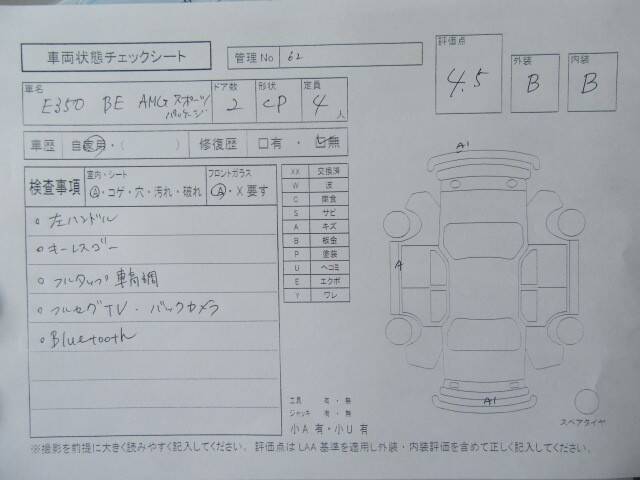 車両状態チェックシート
管理No 62
評価点 4.5
外装 B
内装 B
車名 E350 BE AMG スポーツパッケージ
ドア数 2
形状 CP
定員 4人
車歴 自家用・( )
修復歴 口有・口無
検査事項
室内・シート
A・コゲ・穴・汚れ・破れ
フロントガラス
A・X要す
。左ハンドル
。キーレスゴー
。フルセグTV・バックカメラ
。Bluetooth
XX 交換済
W 波
C 腐食
S サビ
A キズ
B 板金
P 塗装
U ヘコミ
E エクボ
Y ワレ
A1
A
A1
工具 有・無
ジャッキ 有・無
小A 有・小U 有
スペアタイヤ
※撮影を前提に大きく読みやすく記入してください。評価点はLAA基準を適用し外装・内装評価を含めて正しく記入してください。